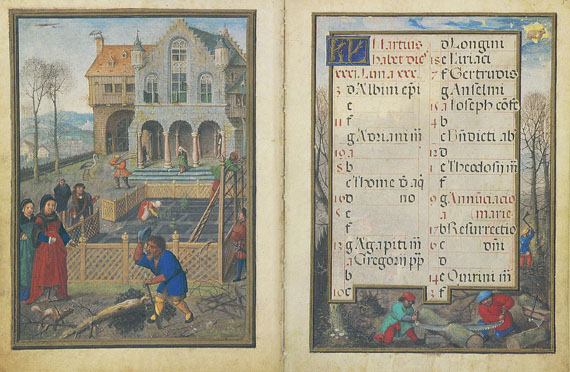 KL Martius
habet dies
xxxi Luna xxx
3 d Albini epi
e
11 f
g Adriani m
19 a
8 b
c Thome d aq
16 d no
5 e
f
13 g
a Gregorii pp
b
10 c
d Longini
18 e Ciriaci
7 f Gertrudis
g Anselmi
15 a Joseph cōfe
4 b
c Bn̄dicti ab
12 d
1 e Theodosii m̄
f
9 g Annūciacio
a marie
17 b Resurrectio
6 c dn̄i
d
14 e Quirini m̄
3 f